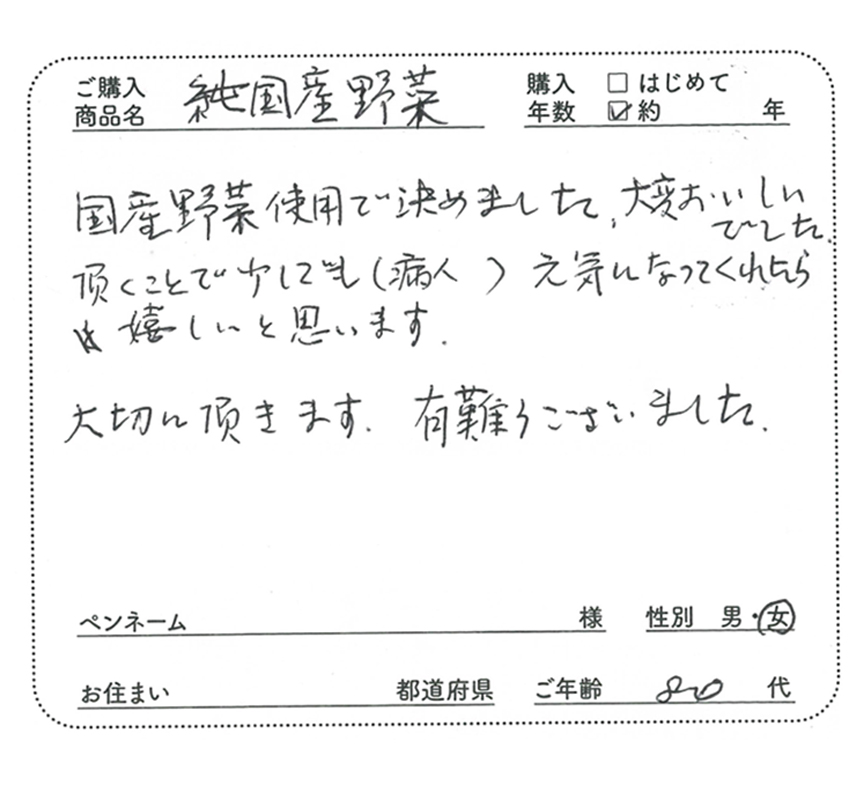 ご購入 商品名 純国産野菜 購入 年数 □ はじめて ☑ 約 年
国産野菜使用で決めました、大変おいしい
でした。
頂くことで少しでも(病人 ) 元気になってくれたら
嬉しいと思います.
大切に頂きます. 有難うございました.
ペンネーム 様 性別 男・女
お住まい 都道府県 ご年齢 80 代